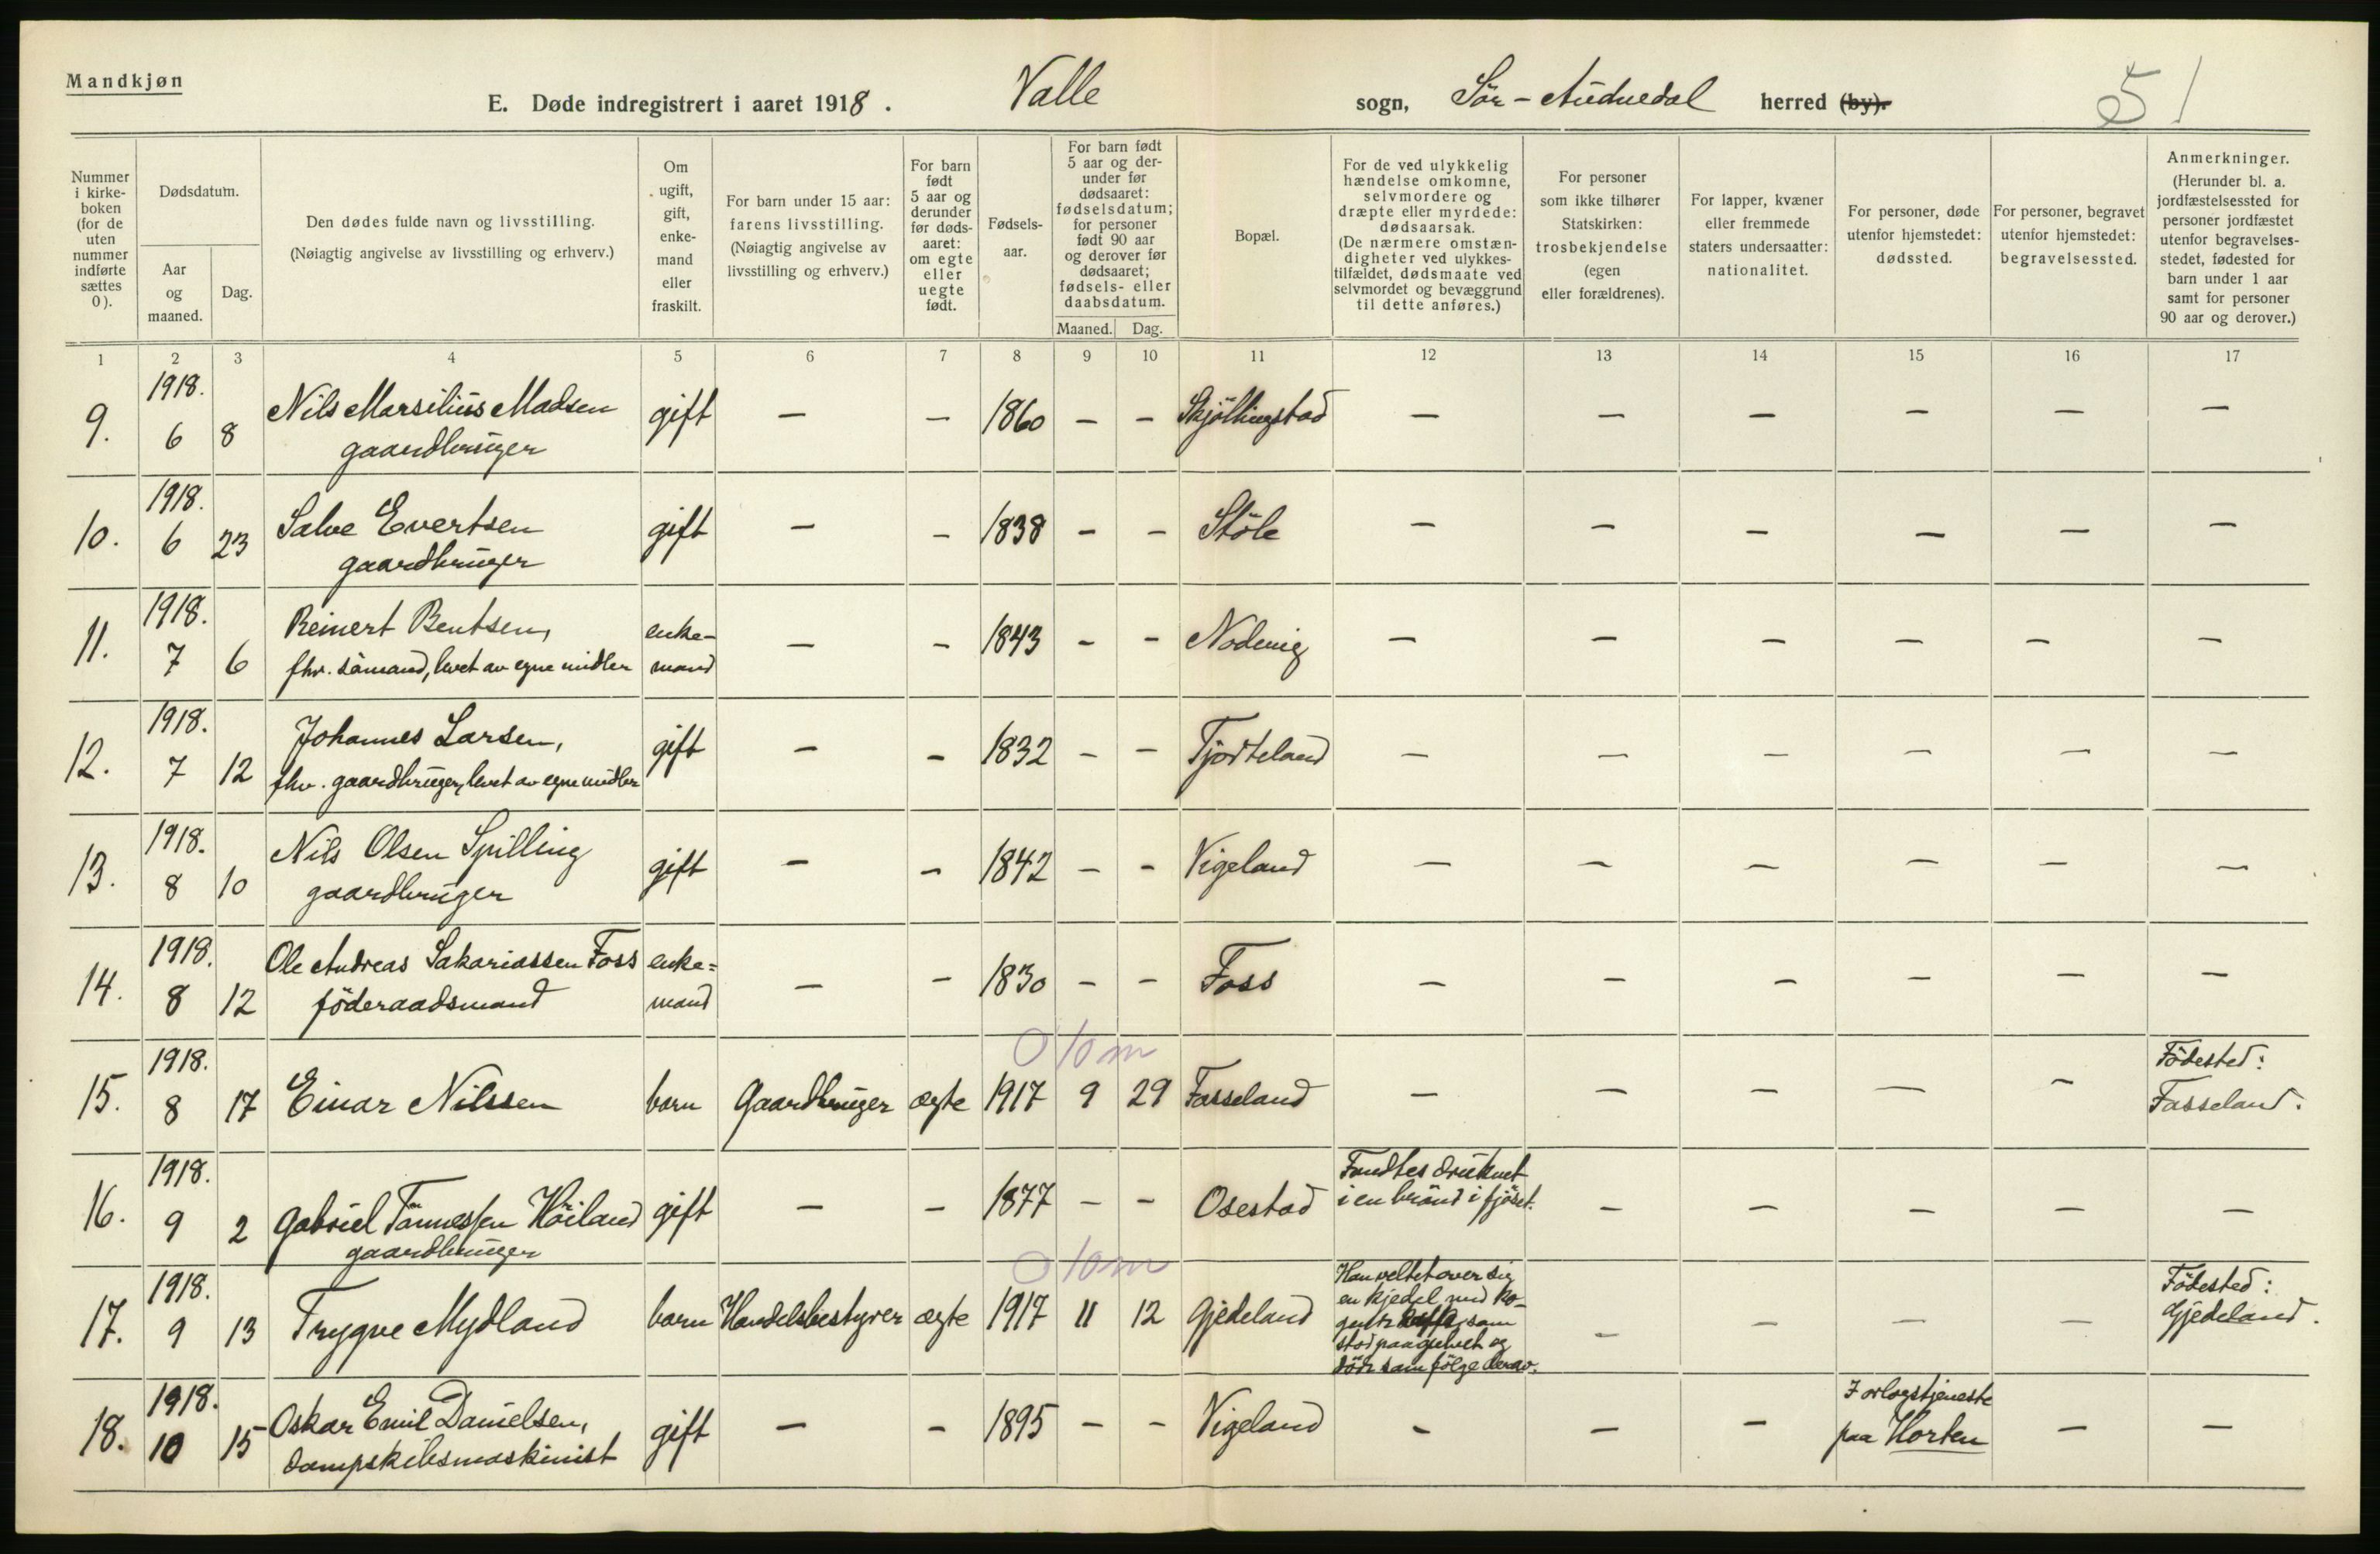 Mandkjøn
E. Døde indregistrert i aaret 1918. Valle sogn, Sör-Audnedal herred (by).
51
Nummer i kirke-boken (for de uten nummer indførte sættes 0).
Dødsdatum.
Aar og maaned.
Dag.
Den dødes fulde navn og livsstilling.
(Nøiagtig angivelse av livsstilling og erhverv.)
Om ugift, gift, enke-mand eller fraskilt.
For barn under 15 aar: farens livsstilling. (Nøiagtig angivelse av livsstilling og erhverv.)
For barn født 5 aar og derunder før døds-aaret: om egte eller uegte født.
Fødsels-aar.
For barn født 5 aar og der-under før dødsaaret: fødselsdatum; for personer født 90 aar og derover før dødsaaret; fødsels- eller daabsdatum.
Maaned. Dag.
Bopæl.
For de ved ulykkelig hændelse omkomne, selvmordere og dræpte eller myrdede: dødsaarsak. (De nærmere omstæn-digheter ved ulykkes-tilfældet, dødsmaate ved selvmordet og bevæggrund til dette anføres.)
For personer som ikke tilhører Statskirken: trosbekjendelse (egen eller forældrenes).
For lapper, kvæner eller fremmede staters undersaatter: nationalitet.
For personer, døde utenfor hjemstedet: dødssted.
For personer, begravet utenfor hjemstedet: begravelsessted.
Anmerkninger. (Herunder bl. a. jordfæstelsessted for personer jordfæstet utenfor begravelses-stedet, fødested for barn under 1 aar samt for personer 90 aar og derover.)
1 2 3 4 5 6 7 8 9 10 11 12 13 14 15 16 17
9. 1918. 6 8 Nils Marsilius Madsen gaardbruger gift — — 1860 — — Skjöllingstad — — — — — —
10. 1918. 6 23 Salve Evertsen gaardbruger gift — — 1838 — — Stöle — — — — — —
11. 1918. 7 6 Reinert Bentsen, fhv. sömand, levet av egne midler enke-mand — — 1843 — — Nodevig — — — — — —
12. 1918. 7 12 Johannes Larsen, fhv. gaardbruger, levet av egne midler gift — — 1832 — — Tjorteland — — — — — —
13. 1918. 8 10 Nils Olsen Spilling gaardbruger gift — — 1842 — — Vigeland — — — — — —
14. 1918. 8 12 Ole Andreas Sakariassen Foss föderaadsmand enke=mand — — 1830 — — Foss — — — — — —
0 10 m
15. 1918. 8 17 Einar Nilssen barn Gaardbruger ægte 1917 9 29 Fasseland — — — — — Födested: Fasseland.
16. 1918. 9 2 Gabriel Tönnessen Höiland gaardbruger gift — — 1877 — — Osestad Fandtes druknet i en brönd i fjöset. — — — — —
0 10 m
17. 1918. 9 13 Trygve Mydland barn Handelsbestyrer ægte 1917 11 12 Gjedeland Han veltet over sig en kjedel med ko-gende kaffe, som stod paa gulvet og döde som fölge derav. — — — — Födested: Gjedeland.
18. 1918. 10 15 Oskar Emil Danielsen, dampskibsmaskinist gift — — 1895 — — Vigeland — — — I orlogstjeneste paa Horten — —